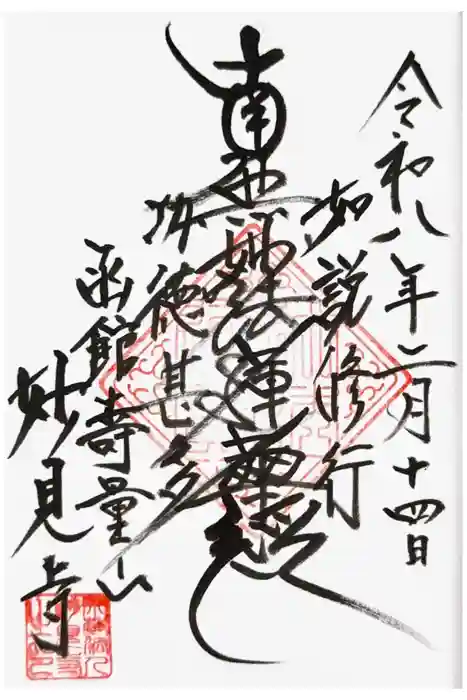 令和八年二月十四日
如説修行
南無妙法蓮華経
功徳甚多
函館寿量山
妙見寺